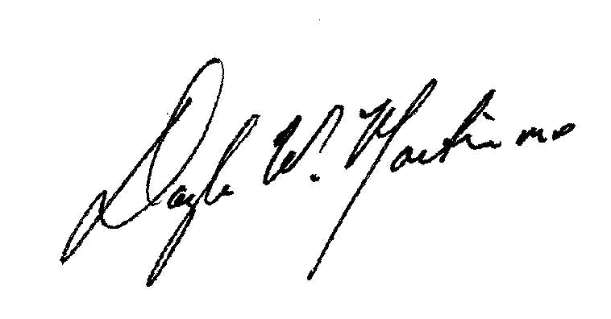 Dayle W. Martin MD